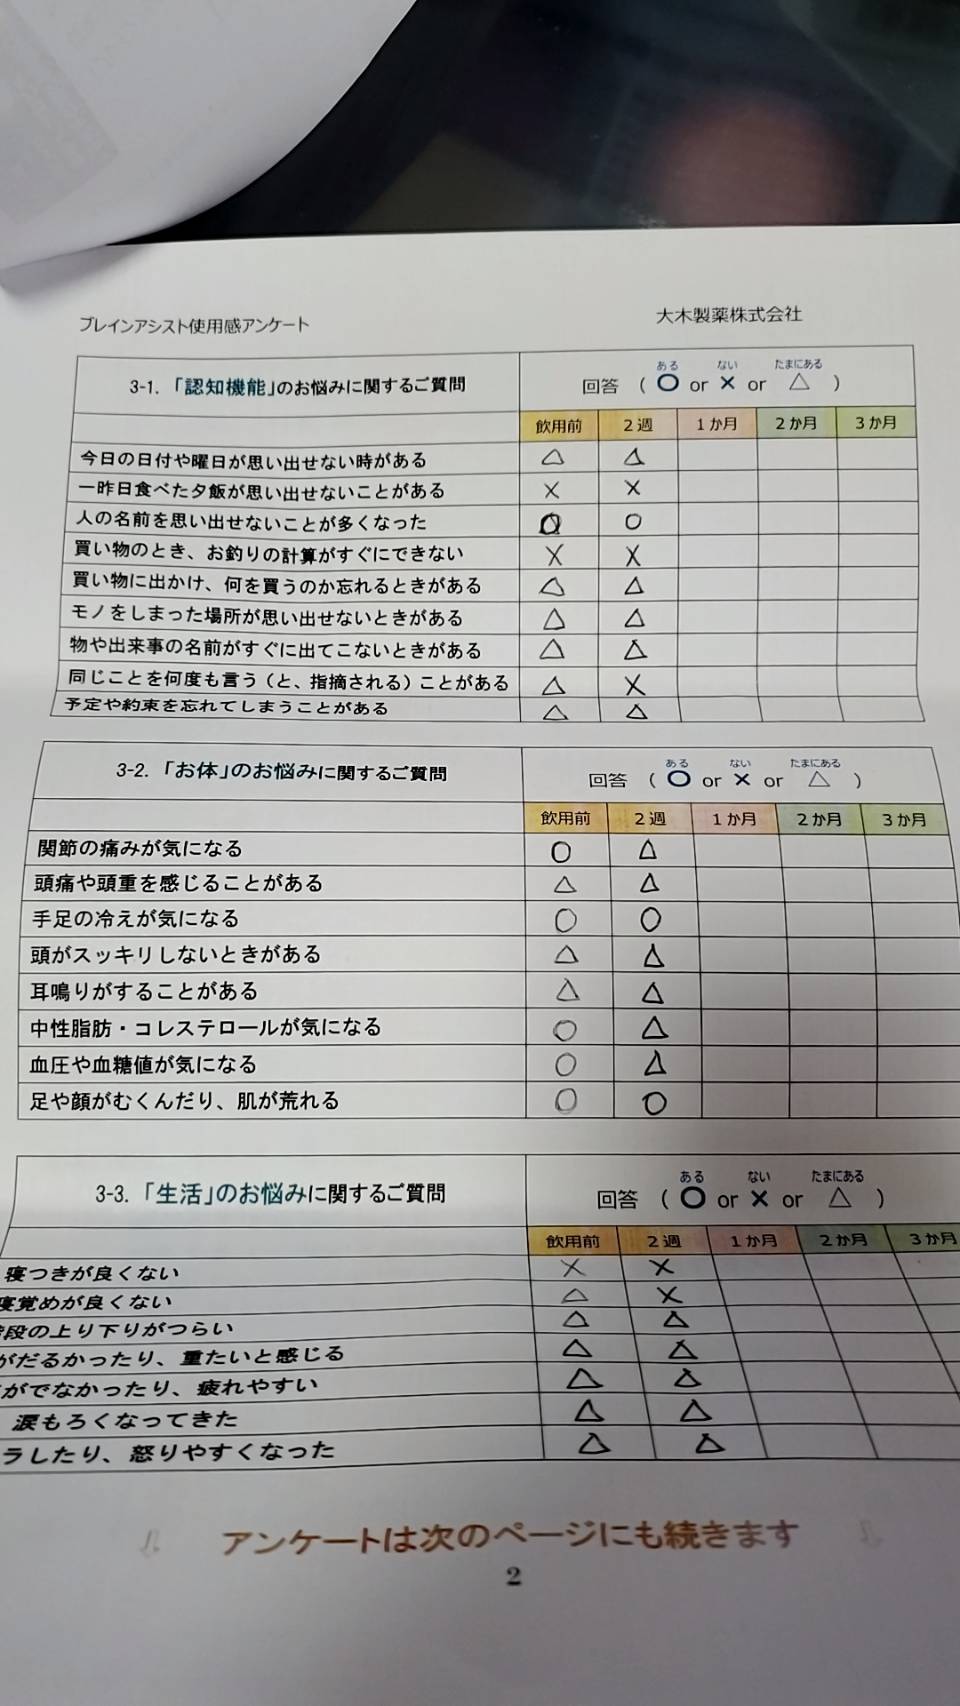 ブレインアシスト使用感アンケート 大木製薬株式会社
3-1.「認知機能」のお悩みに関するご質問 回答 ( ある ○ or ない × or たまにある △ )
飲用前 2週 1か月 2か月 3か月
今日の日付や曜日が思い出せない時がある △ △
一昨日食べた夕飯が思い出せないことがある × ×
人の名前を思い出せないことが多くなった ○ ○
買い物のとき、お釣りの計算がすぐにできない × ×
買い物に出かけ、何を買うのか忘れるときがある △ △
モノをしまった場所が思い出せないときがある △ △
物や出来事の名前がすぐに出てこないときがある △ △
同じことを何度も言う(と、指摘される)ことがある △ ×
予定や約束を忘れてしまうことがある △ △
3-2.「お体」のお悩みに関するご質問 回答 ( ある ○ or ない × or たまにある △ )
飲用前 2週 1か月 2か月 3か月
関節の痛みが気になる ○ △
頭痛や頭重を感じることがある △ △
手足の冷えが気になる ○ ○
頭がスッキリしないときがある △ △
耳鳴りがすることがある △ △
中性脂肪・コレステロールが気になる ○ △
血圧や血糖値が気になる ○ △
足や顔がむくんだり、肌が荒れる ○ ○
3-3.「生活」のお悩みに関するご質問 回答 ( ある ○ or ない × or たまにある △ )
飲用前 2週 1か月 2か月 3か月
寝つきが良くない × ×
寝覚めが良くない △ ×
段の上り下りがつらい △ △
がだるかったり、重たいと感じる △ △
がでなかったり、疲れやすい △ △
涙もろくなってきた △ △
ラしたり、怒りやすくなった △ △
アンケートは次のページにも続きます
2